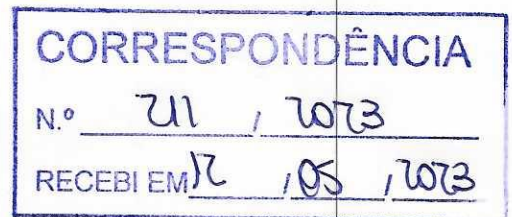 CORRESPONDÊNCIA
N.º 211 / 2023
RECEBI EM 12 / 05 / 2023